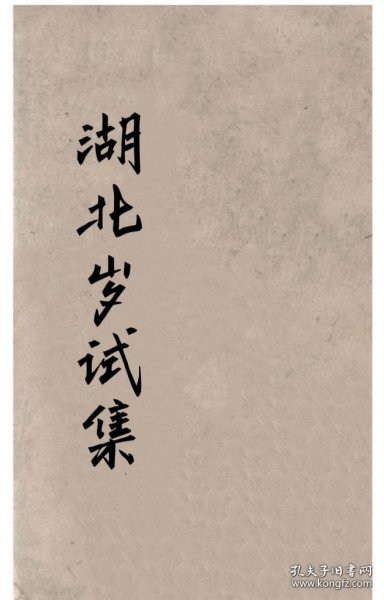 湖北岁试集
孔夫子旧书网
www.kongfz.com